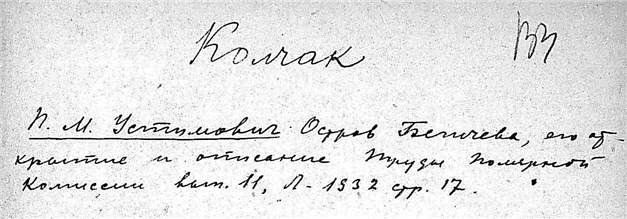 Колчак
П. М. Устимович Остров Бегичева, его от-
крытие и описание Труды Полярной
Комиссии вып. 11, Л. 1932 стр. 17.